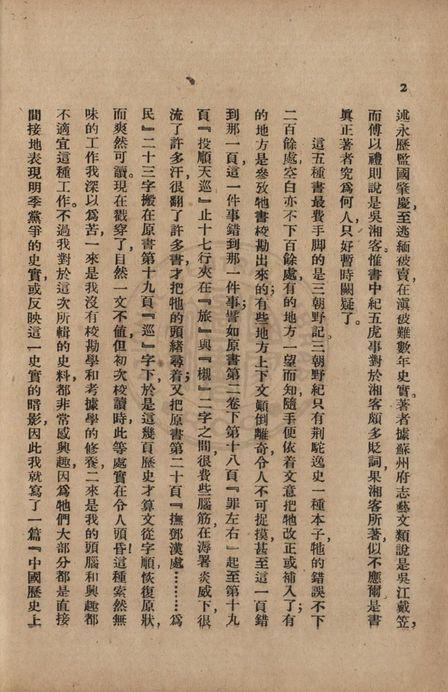 2
述永歷監國肇慶，至逃緬被賣，在滇被難數年史實。著者據蘇州府志藝文類說是吳江戴笠，
而傅以禮則說是吳湘客。惟書中紀五虎事對於湘客頗多貶詞，果湘客所著，似不應爾，是書
眞正著者究爲何人，只好暫時闕疑了。
這五種書最費手脚的是三朝野記，三朝野紀只有荆駝逸史一種本子，牠的錯誤不下
二百餘處，空白亦不下百餘處，有的地方一望而知，隨手便依着文意把牠改正或補入了；有
的地方是參攷牠書校勘出來的；有些地方上下文顚倒離奇，令人不可捉摸，甚至這一頁錯
到那一頁，這一件事錯到那一件事；譬如原書第二卷下第十八頁『罪左右』起至第十九
頁『投順天巡』止十七行夾在『旅』與『櫬』二字之間，很費些腦筋，在溽署炎威下，很
流了許多汗，很翻了許多書，才把牠的頭緒尋着；又把原書第二十頁『撫鄧漢處………爲
民』二十三字搬在原書第十九頁『巡』字下，於是這幾頁歷史才算文從字順，恢復原狀，
而爽然可讀。現在戳穿了，自然一文不値，但初次校讀時，此等處實在令人頭昏！這種索然無
味的工作，我深以爲苦，一來是我沒有校勘學和考據學的修養，二來是我的頭腦和興趣都
不適宜這種工作。不過我對於這次所輯的史料，都非常感興趣，因爲牠們大部分都是直接
間接地表現明季黨爭的史實，或反映這一史實的暗影，因此我就寫了一篇『中國歷史上